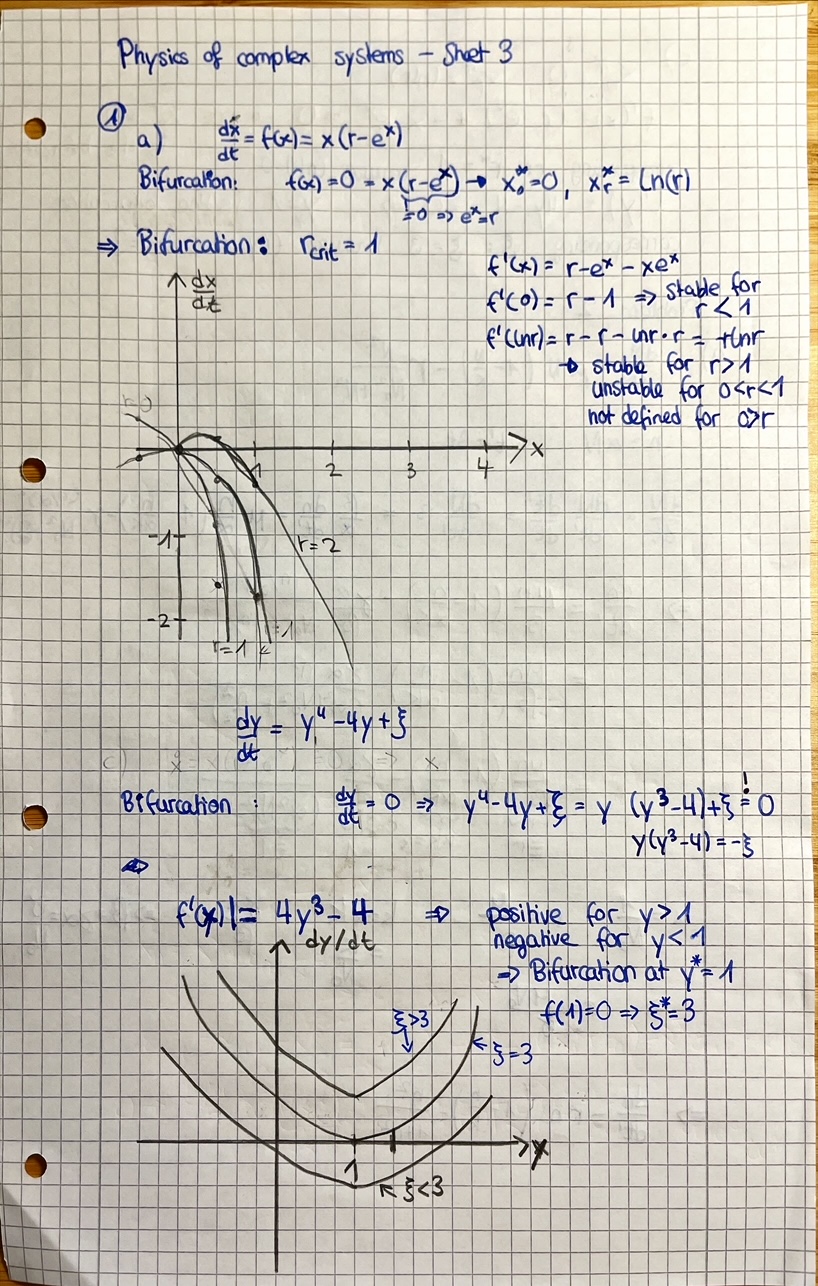 Physics of complex systems – Sheet 3
①
a) dx/dt = f(x) = x(r-eˣ)
Bifurcation: f(x)=0 = x(r-eˣ) → x₀*=0, xᵣ* = Ln(r)
!=0 ⇒ eˣ=r
⇒ Bifurcation: r_crit = 1
f'(x) = r-eˣ - xeˣ
f'(0) = r - 1 ⇒ stable for
r < 1
f'(lnr) = r - r - lnr·r = -rlnr
→ stable for r>1
unstable for 0<r<1
not defined for 0>r
dx/dt
r=0
x
1 2 3 4
-1
r=2
-2
r=1 r=-1
dy/dt = y⁴ - 4y + ξ
Bifurcation: dy/dt = 0 ⇒ y⁴-4y+ξ = y (y³-4)+ξ != 0
y(y³-4) = -ξ
f'(y)|= 4y³ - 4 ⇒ positive for y>1
negative for y<1
⇒ Bifurcation at y*=1
f(1)=0 ⇒ ξ*=3
dy/dt
ξ>3
← ξ=3
y
1
ξ<3